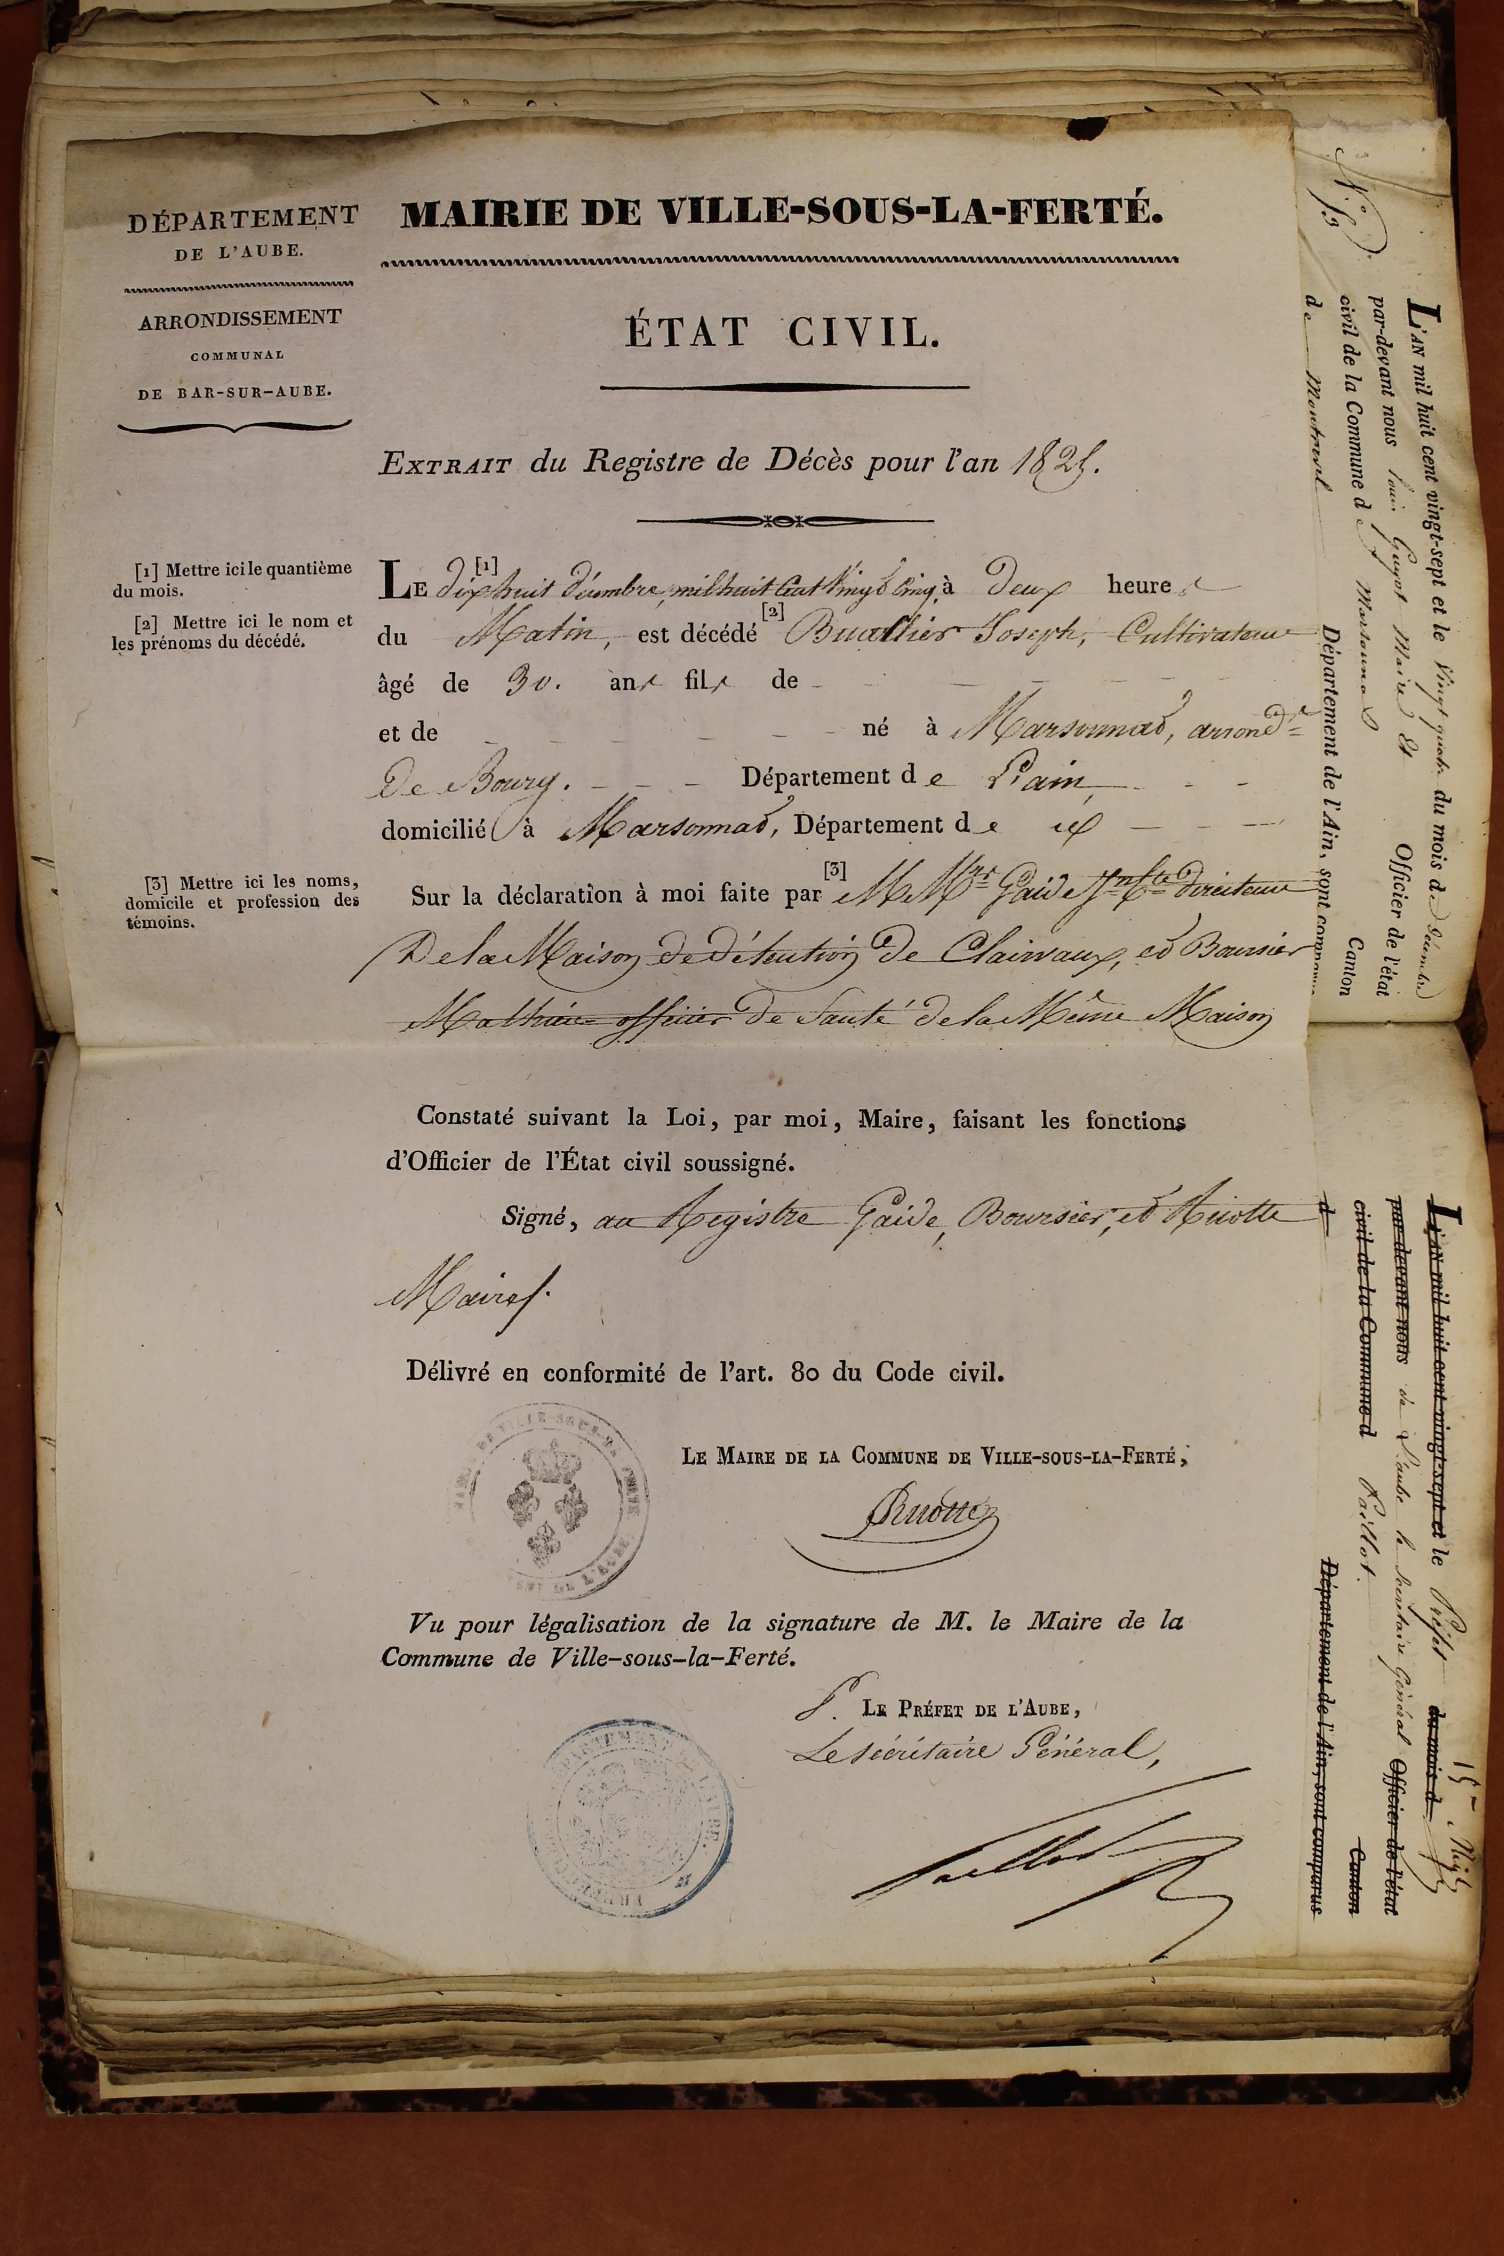 DÉPARTEMENT
DE L'AUBE.
ARRONDISSEMENT
COMMUNAL
DE BAR-SUR-AUBE.
MAIRIE DE VILLE-SOUS-LA-FERTÉ.
ÉTAT CIVIL.
EXTRAIT du Registre de Décès pour l'an 1825.
[1] Mettre ici le quantième
du mois.
[2] Mettre ici le nom et
les prénoms du décédé.
[3] Mettre ici les noms,
domicile et profession des
témoins.
[1]
LE dixhuit décembre, mil huit Cent Vingt Cinq, à deux heures
[2]
du Matin, est décédé Buathier Joseph, Cultivateur
âgé de 30. ans fils de
et de né à Marsonnas, arrond.
de Bourg. Département de l'ain,
domicilié à Marsonnas, Département de
[3]
Sur la déclaration à moi faite par MMrs Gaide directeur
De la Maison de détention de Clairvaux, et Boursier
Mathieu officier de Santé de la Même Maison
Constaté suivant la Loi, par moi, Maire, faisant les fonctions
d'Officier de l'État civil soussigné.
Signé, au Registre Gaide, Boursier, et Ruotte
Maire.
Délivré en conformité de l'art. 80 du Code civil.
LE MAIRE DE LA COMMUNE DE VILLE-SOUS-LA-FERTÉ,
Ruotte
Vu pour légalisation de la signature de M. le Maire de la
Commune de Ville-sous-la-Ferté.
P. LE PRÉFET DE L'AUBE,
Le Secrétaire Général,
Paillot
N.
L'AN mil huit cent vingt-sept et le Vingt quatre du mois de décembre
par-devant nous Louis Guyot Maire et Officier de l'état
civil de la Commune de Marsonnas Canton
de Montrevel Département de l'Ain, sont comparus
L'AN mil huit cent vingt-sept et le Préfet du mois d
par-devant nous de l'aube le Secrétaire Général Officier de l'état
civil de la Commune d Paillot. Canton
d Département de l'Ain, sont comparus